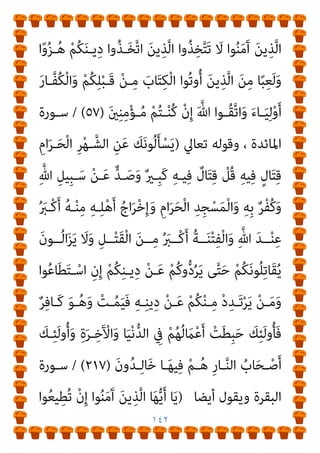 الَّذِينَ آمَنُوا لَا تَتَّخِذُوا الَّذِينَ اتَّخَـذُوا دِيـنَكُمْ هُـزُوًا
وَلَعِبًا مِنَ الَّذِينَ أُوتُوا الْكِتَابَ مِـنْ قَـبْلِكُمْ وَالْكُفَّـارَ
أَوْلِيَـاءَ وَاتَّقُـوا اللَّهَ إِنْ كُنْـتُمْ مُـؤْمِنِينَ (٥٧) / سـورة
المائدة ، وقوله تعالي (يَسْأَلُونَكَ عَنِ الشَّـهْرِ الْحَـرَامِ
قِتَالٍ فِيهِ قُلْ قِتَالٌ فِيـهِ كَبِـيرٌ وَصَـدٌّ عَـنْ سَـبِيلِ اللَّهِ
وَكُفْرٌ بِهِ وَالْمَسْجِدِ الْحَرَامِ وَإِخْرَاجُ أَهْلِـهِ مِنْـهُ أَكْـبَرُ
عِنْـدَ اللَّهِ وَالْفِتْنَـةُ أَكْـبَرُ مِـنَ الْقَتْـلِ وَلَا يَزَالُـونَ
يُقَاتِلُونَكُمْ حَتَّى يَرُدُّوكُمْ عَـنْ دِيـنِكُمْ إِنِ اسْـتَطَاعُوا
وَمَـنْ يَرْتَـدِدْ مِـنْكُمْ عَـنْ دِينِـهِ فَيَمُـتْ وَهُـوَ كَـافِرٌ
فَأُولَئِكَ حَبِطَتْ أَعْمَالُهُمْ فِي الدُّنْيَا وَالْآَخِـرَةِ وَأُولَئِـكَ
أَصْـحَابُ النَّـارِ هُـمْ فِيهَـا خَالِـدُونَ (٢١٧) / سـورة
البقرة ويقول أيضا (يَا أَيُّهَا الَّذِينَ آَمَنُوا إِنْ تُطِيعُوا
١٤٢